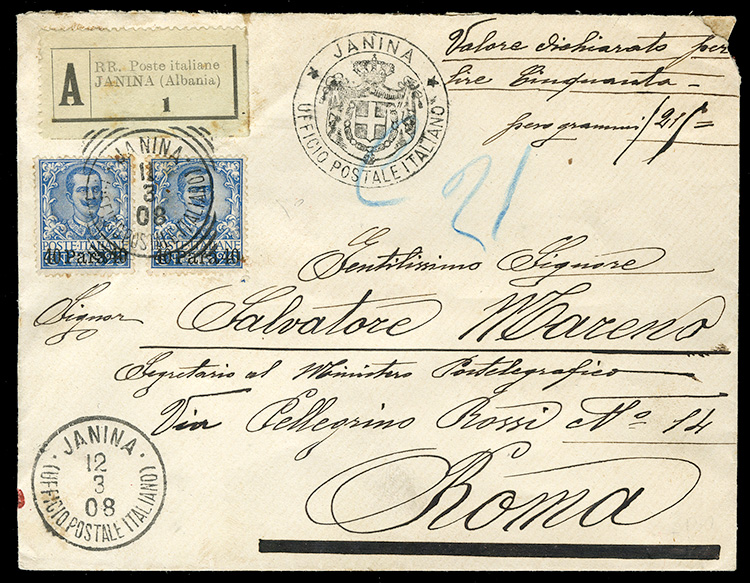 A
RR. Poste italiane
JANINA (Albania)
1
JANINA
UFFICIO POSTALE ITALIANO
Valore dichiarato per
lire Cinquanta
peso grammi 21
21
JANINA
12
3
08
(UFFICIO POSTALE ITALIANO)
POSTE ITALIANE
40 Para 40
POSTE ITALIANE
40 Para 40
Gentilissimo Signore
Signor Salvatore Mareno
Segretario al Ministero Postelegrafico
Via Pellegrino Rossi No. 14
Roma
JANINA
12
3
08
(UFFICIO POSTALE ITALIANO)